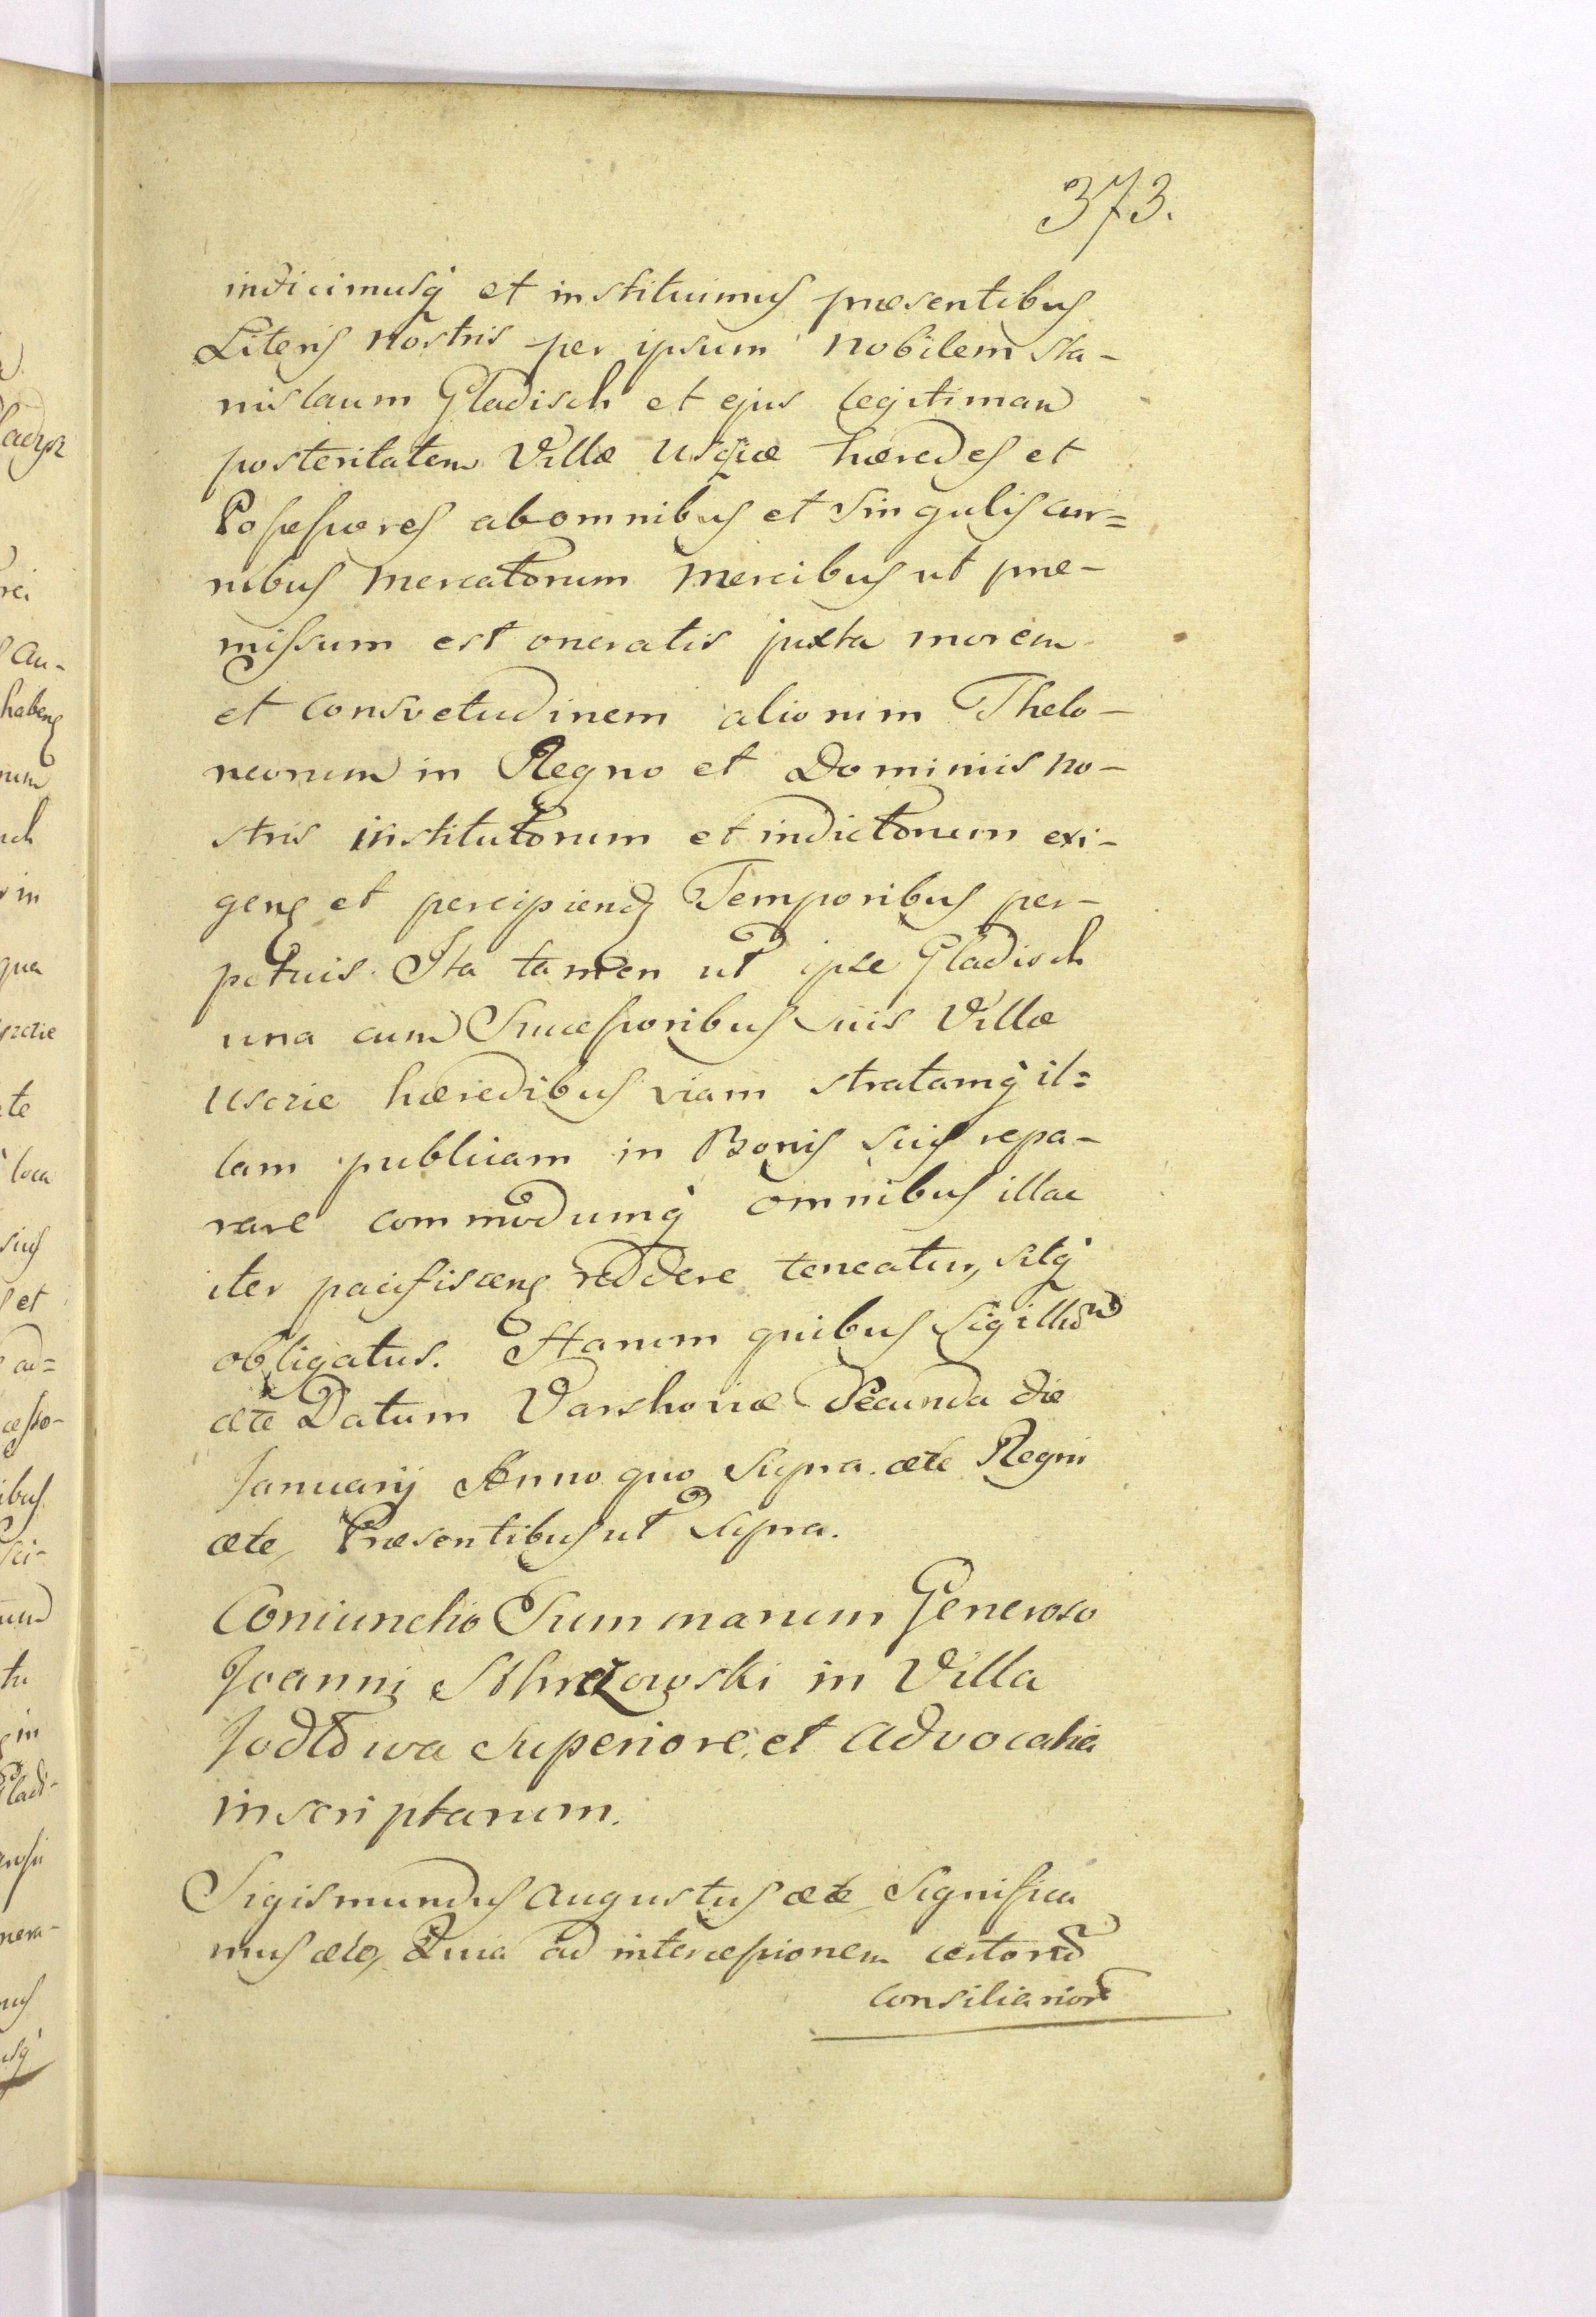 373.
indicimusq́ et instituimus præsentibus
Literis nostris per ipsum nobilem Sta-
nislaum Gladisch et ejus legitimam
posteritatem Villæ Uscziæ hæredes et
Possessores ab omnibus et singulis cur=
ribus Mercatorum Mercibus ut præ-
missum est oneratis juxta morem
et consvetudinem aliorum Thelo-
neorum in Regno et Dominiis no-
stris institutorum et indictorum exi-
gen et percipiend Temporibus per-
petuis. Ita tamen ut ipse Gladisch
una cum Successoribus suis Villæ
Usczie hæredibus viam stratamq́ il=
lam publicam in Bonis suis repa-
rare commodumq́ omnibus illac
iter pacifiscen reddere teneatur, sitq́
obligatus. Harum quibus Sigillum
etc Datum Varshoviæ Secunda die
Januarij Anno quo supra. etc Regni
etc, Præsentibus ut supra.
Coniunctio Summarum Generoso
Joanni in Villa
Jodłowa superiore, et advocatia
inscriptarum.
Sigismundus Augustus etc Significa
mus etc, Quia ad intercessionem certor
consiliarior